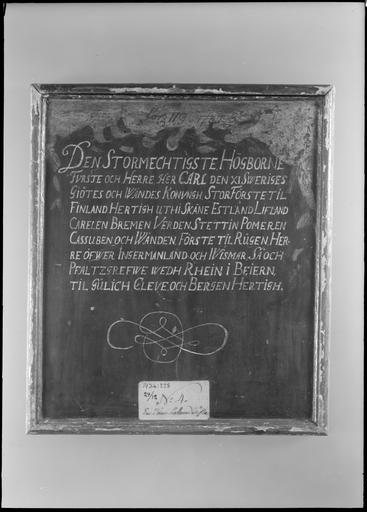 DEN STORMECHTIGSTE HÖGBORNE
FVRSTE OCH HERRE HER CARL DEN XI SWERIGES
GIÖTES OCH WÄNDES KONUNGH STORFÖRSTE TIL
FINLAND HERTIGH UTHI SKÅNE ESTLAND LIFLAND
CARELEN BREMEN VERDEN STETTIN POMEREN
CASSUBEN OCH WÄNDEN FÖRSTE TIL RÜGEN HER-
RE ÖFWER INGERMANLAND OCH WISMAR SÅ OCH
PFALTZGREFWE WEDH RHEIN I BEIERN,
TIL GÜLICH CLEVE OCH BERGEN HERTIGH.
1934:225
29/12 No 1.